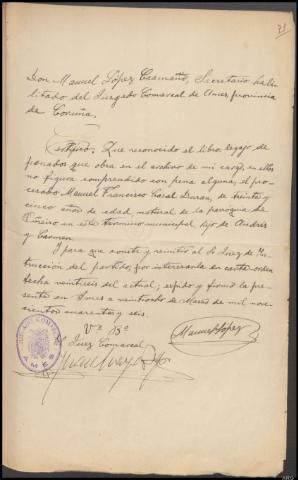 71
Don Manuel López Caamaño, Secretario habi-
litado del Juzgado Comarcal de Ames, provincia
de Coruña.
Certifico: Que reconocido el libro legajo de
penados que obra en el archivo de mi cargo, en ellos
no figura comprendido con pena alguna, el pro-
cesado Manuel Francisco Casal Durán, de treinta y
cinco años de edad, natural de la parroquia de
en este término municipal, hijo de Andrés
y Carmen.
Y para que conste y remitir al Sr Juez de Ins-
trucción del partido, por interesarlo en carta-orden
fecha veintiseis del actual, expido y firmo la pre-
sente en Ames a veintiocho de Marzo de mil nove-
cientos cuarenta y seis.
Vº Bº
El Juez Comarcal
Manuel López
JUZGADO COMARCAL
AMES
ARG